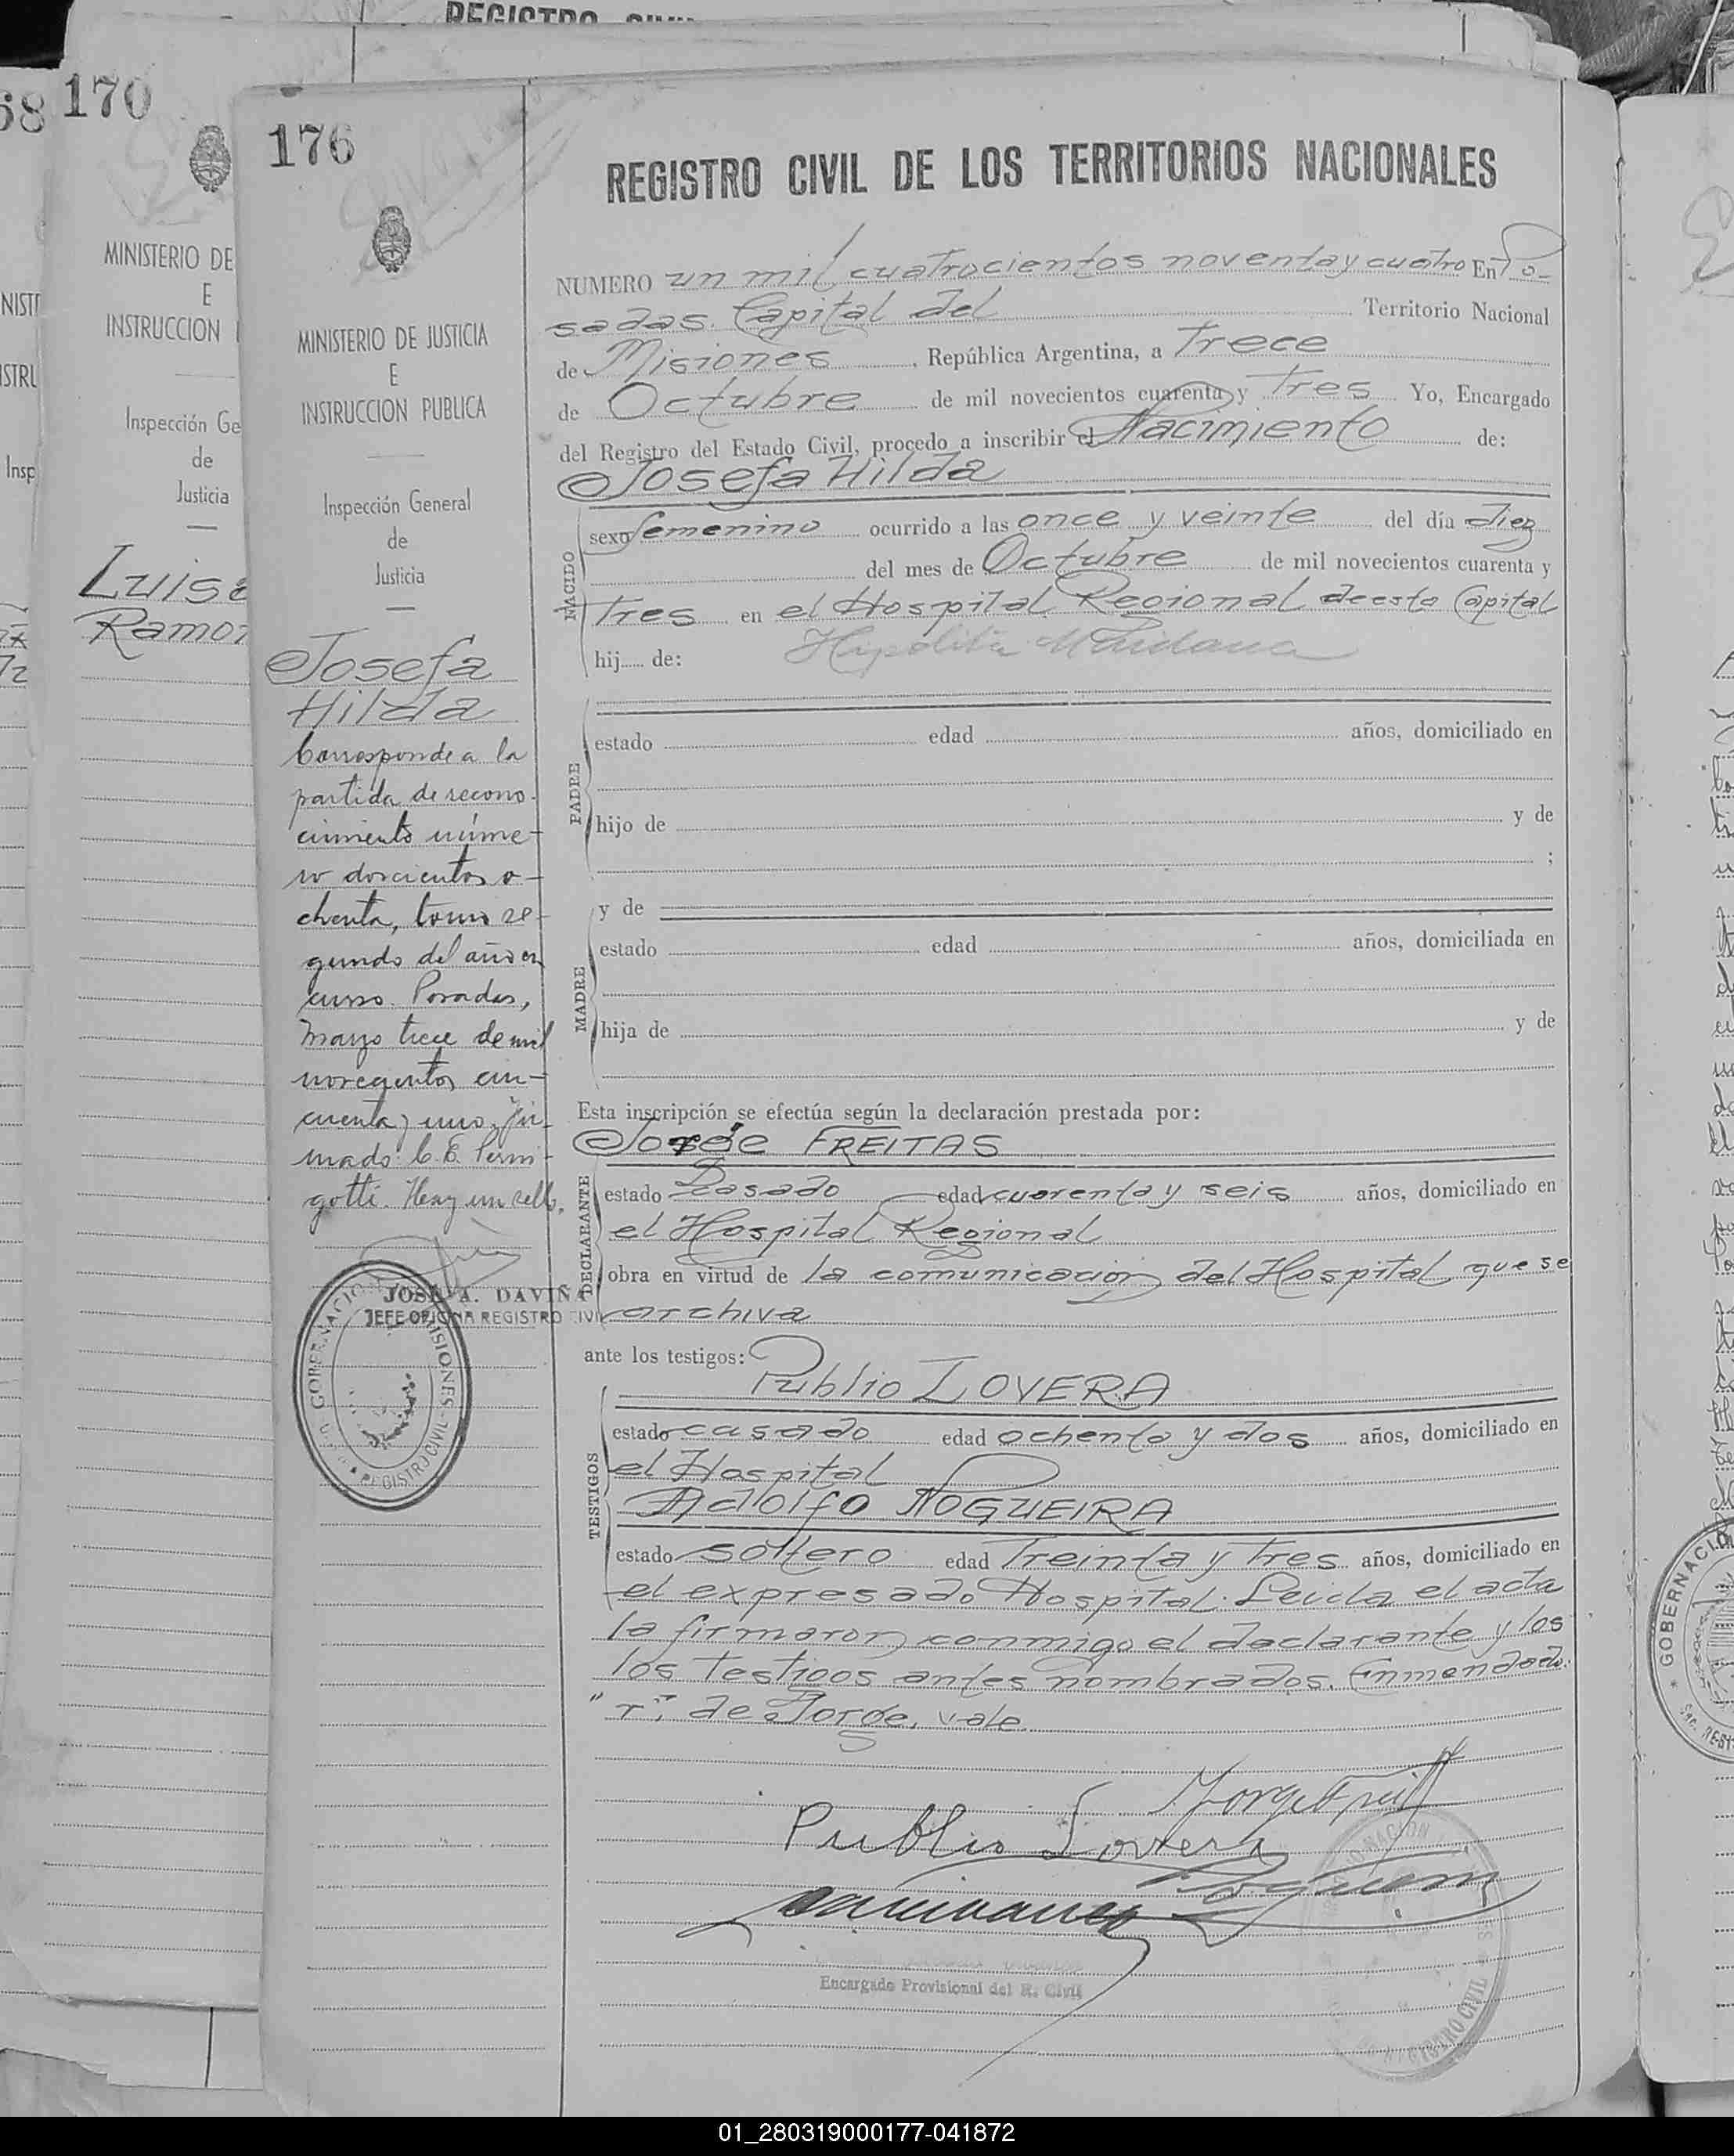 REGISTRO CIVIL
68
170
176
MINISTERIO DE
E
INSTRUCCION
Inspección Ge
de
Justicia
Luisa
Ramon
MINISTERIO DE JUSTICIA
E
INSTRUCCION PUBLICA
Inspección General
de
Justicia
Josefa
Hilda
Corresponde a la
partida de recono-
cimiento núme-
ro doscientos o-
chenta, tomo se-
gundo del año en
curso. Posadas,
Marzo trece de mil
novecientos cin-
cuenta y uno. Fir-
mado: C. E. Permi-
gotti. Hay un sello.
JOSE A. DAVIÑA
JEFE OFICINA REGISTRO CIVIL
GOBERNACION MISIONES
REGISTRO CIVIL
REGISTRO CIVIL DE LOS TERRITORIOS NACIONALES
NUMERO un mil cuatrocientos noventa y cuatro En Po-
sadas. Capital del Territorio Nacional
de Misiones, República Argentina, a Trece
de Octubre de mil novecientos cuarenta y Tres Yo, Encargado
del Registro del Estado Civil, procedo a inscribir el Nacimiento de:
Josefa Hilda
NACIDO
sexo femenino ocurrido a las once y veinte del día diez
del mes de Octubre de mil novecientos cuarenta y
Tres en el Hospital Regional de esta Capital
hij de: Hipólita
PADRE
estado edad años, domiciliado en
hijo de y de
;
y de
MADRE
estado edad años, domiciliada en
hija de y de
Esta inscripción se efectúa según la declaración prestada por:
Jorge FREITAS
DECLARANTE
estado Casado edad cuarenta y seis años, domiciliado en
el Hospital Regional
obra en virtud de la comunicación del Hospital que se
archiva
ante los testigos:
Publio LOVERA
TESTIGOS
estado casado edad ochenta y dos años, domiciliado en
el Hospital
Adolfo NOGUEIRA
estado soltero edad Treinta y Tres años, domiciliado en
el expresado Hospital. Leida el acta
la firmaron conmigo el declarante y los
los testigos antes nombrados. Enmendado:
"r": de Jorge, vale
Jorge Freitas
Publio Lovera
Encargado Provisional del R. Civil
REGISTRO CIVIL
GOBERNACION
01_280319000177-041872